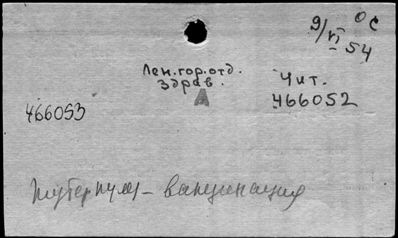 9/VI 54 ОС
Лен.гор.отд.
здрав.
А
Чит.
466053
466052
вакцинация